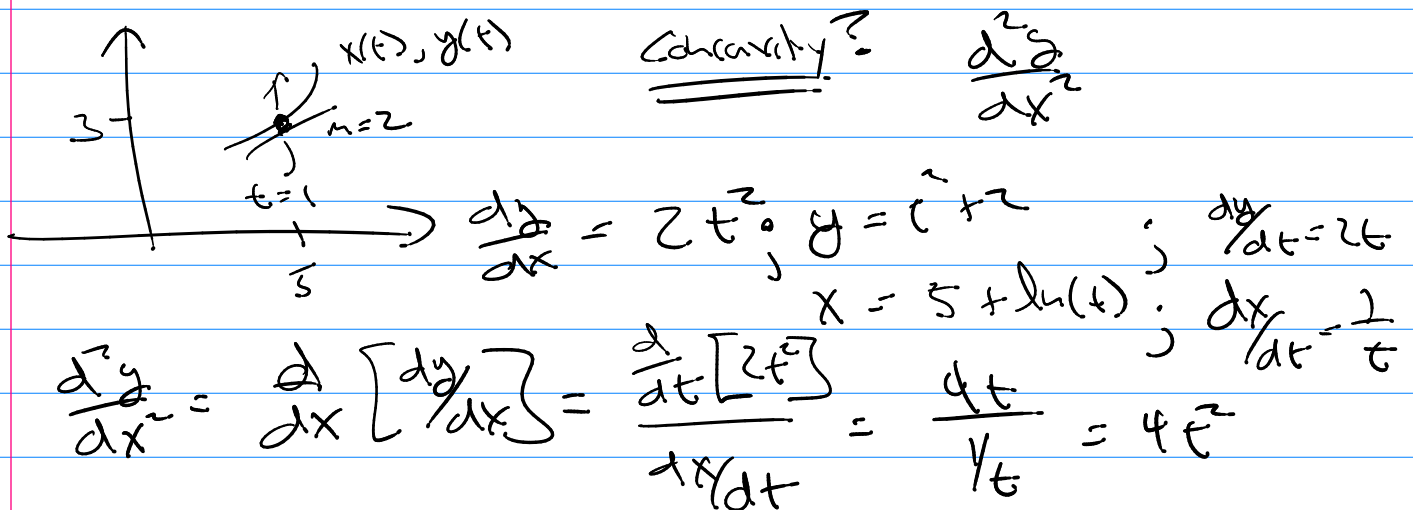 x(t), y(t)
Concavity? d²y/dx²
3
m=2
t=1
5
dy/dx = 2t² ; y = t²+2 ; dy/dt = 2t
x = 5 + ln(t) ; dx/dt = 1/t
d²y/dx² = d/dx [dy/dx] = d/dt[2t²] / dx/dt = 4t / 1/t = 4t²